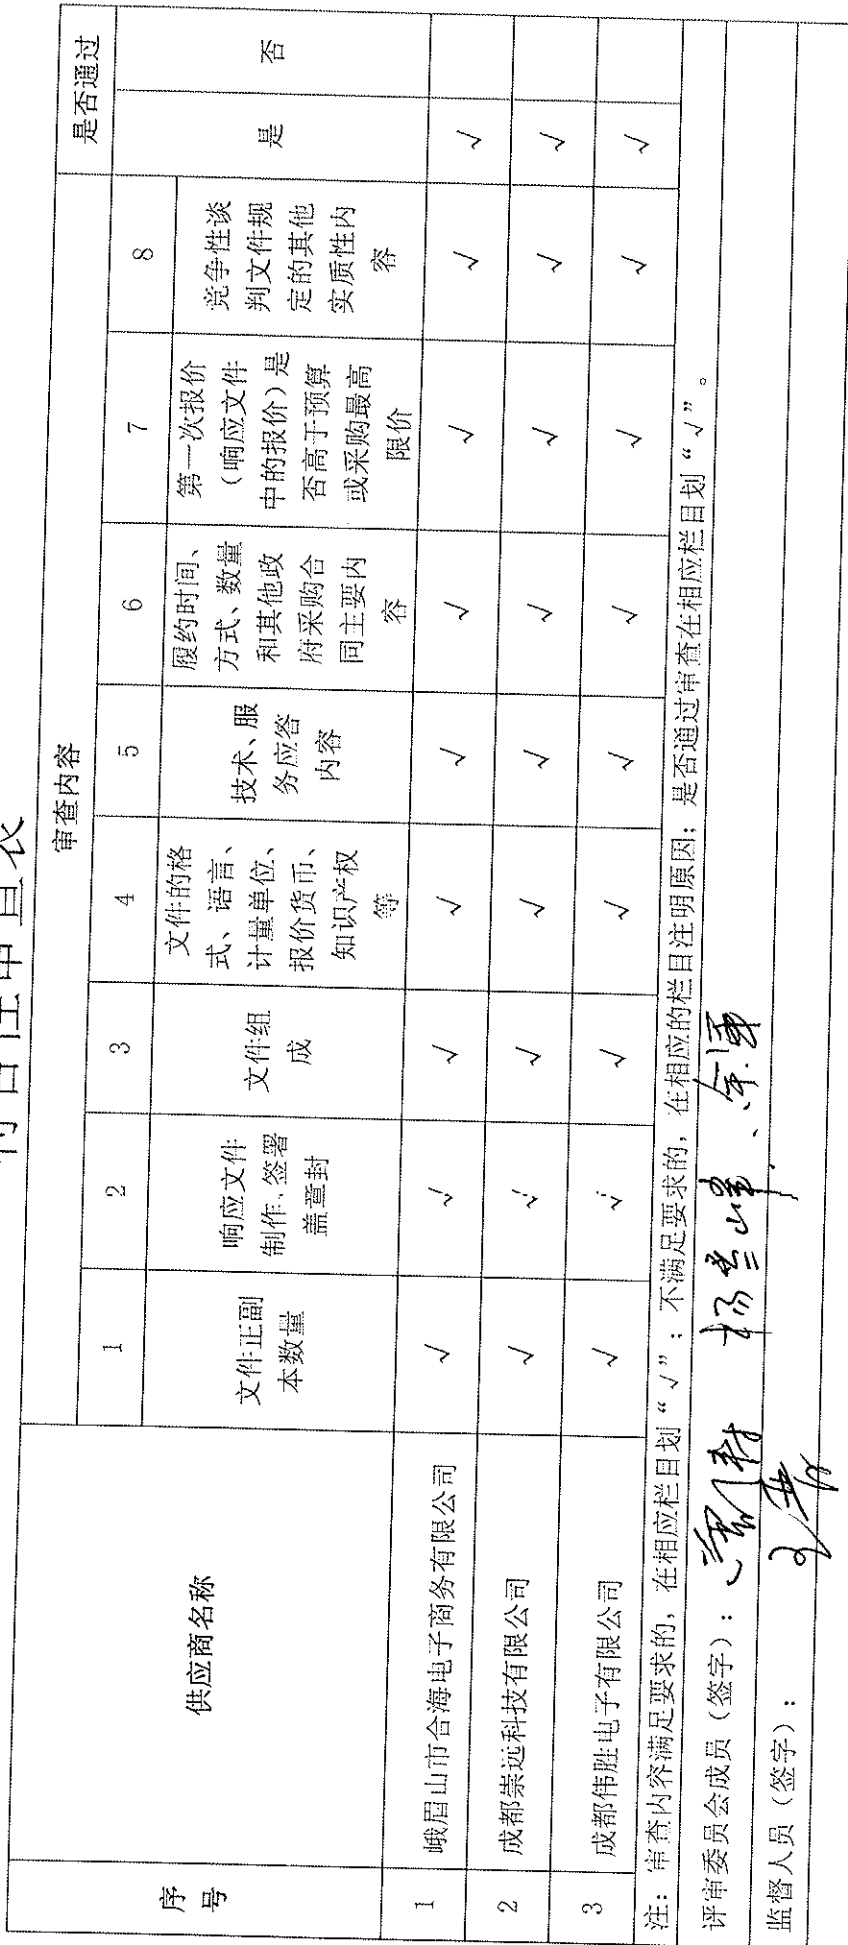 符合性审查表
序号
供应商名称
审查内容
是否通过
1
2
3
4
5
6
7
8
是
否
文件正副
本数量
响应文件
制作、签署
盖章封
文件组
成
文件的格
式、语言、
计量单位、
报价货币、
知识产权
等
技术、服
务应答
内容
履约时间、
方式、数量
和其他政
府采购合
同主要内
容
第一次报价
（响应文件
中的报价）是
否高于预算
或采购最高
限价
竞争性谈
判文件规
定的其他
实质性内
容
1 峨眉山市合海电子商务有限公司 √ √ √ √ √ √ √ √ √
2 成都崇远科技有限公司 √ √ √ √ √ √ √ √ √
3 成都伟胜电子有限公司 √ √ √ √ √ √ √ √ √
注：审查内容满足要求的，在相应栏目划“√”；不满足要求的，在相应的栏目注明原因；是否通过审查在相应栏目划“√”。
评审委员会成员（签字）：
监督人员（签字）：